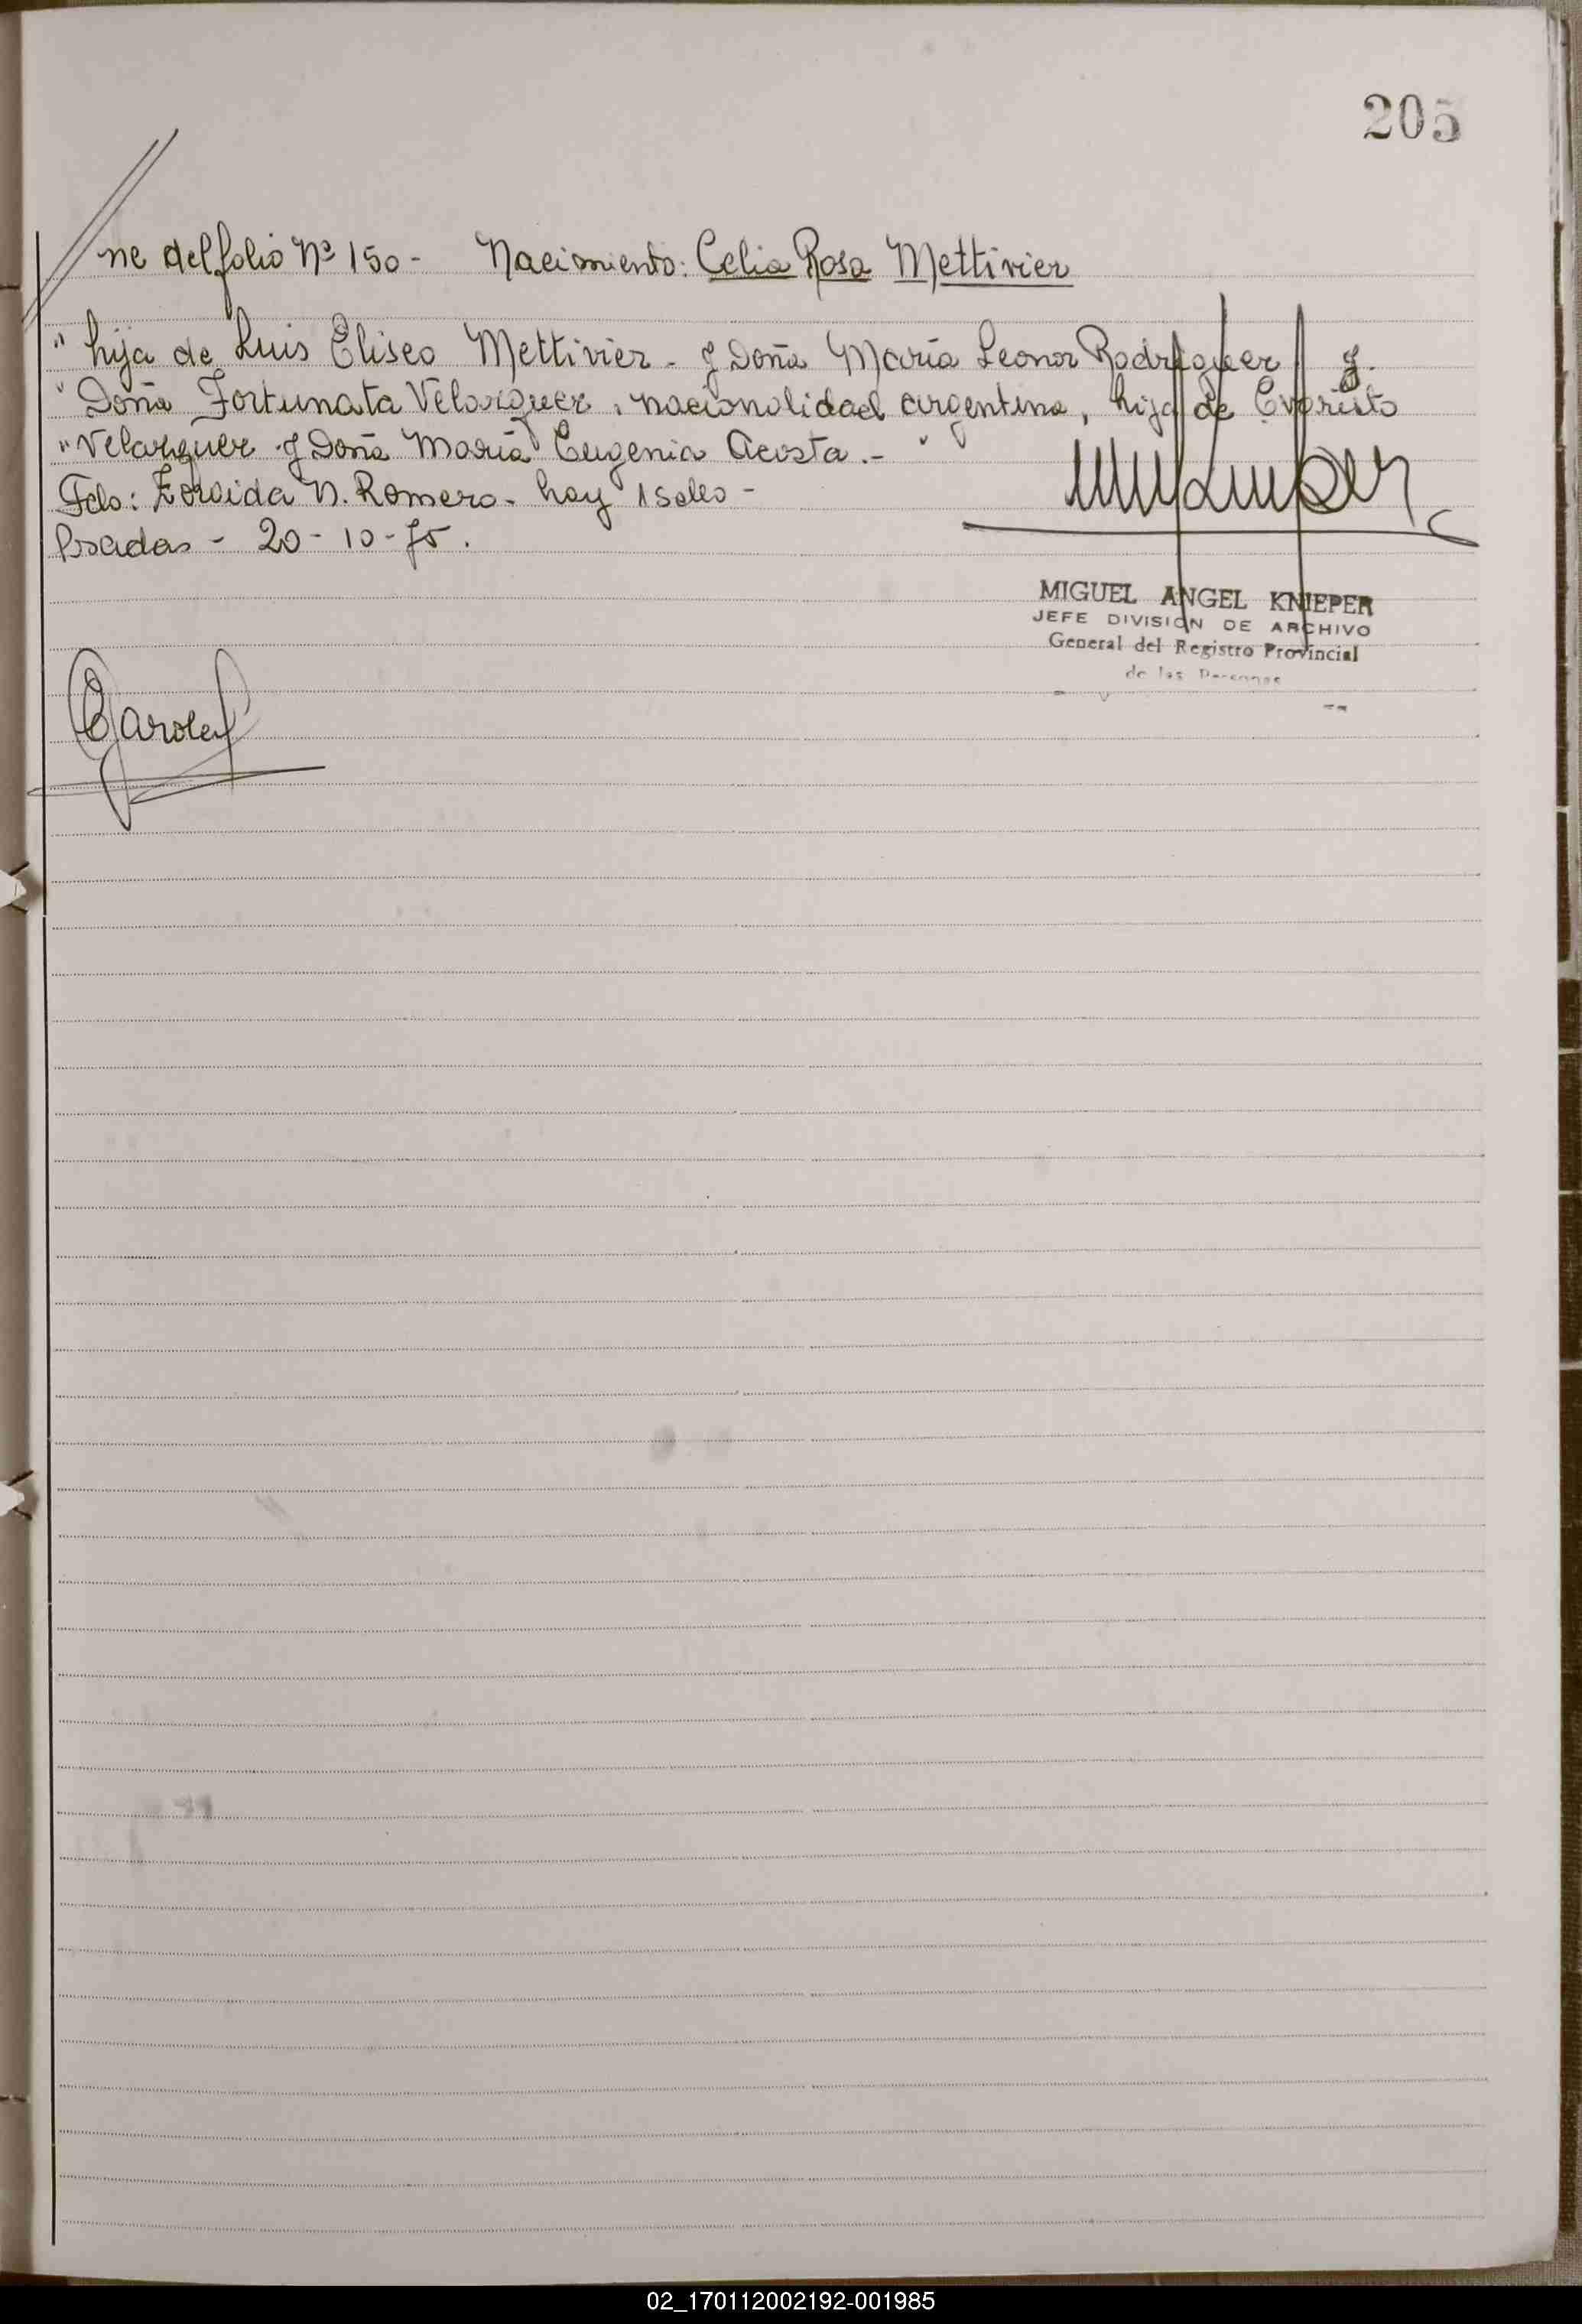 205
//ne del folio Nº 150 - Nacimiento: Celia Rosa Mettivier
" hija de Luis Eliseo Mettivier - y Doña María Leonor Rodriguez y.
" Doña Fortunata Velazquez, nacionalidad argentina, hija de Evaristo
" Velazquez y Doña María Eugenia Acosta .- "
Fdo: Zoraida N. Romero - hay 1 sello -
Posadas - 20 - 10 - 75.
MIGUEL ANGEL KNIEPER
JEFE DIVISION DE ARCHIVO
General del Registro Provincial
de las Personas
02_170112002192-001985